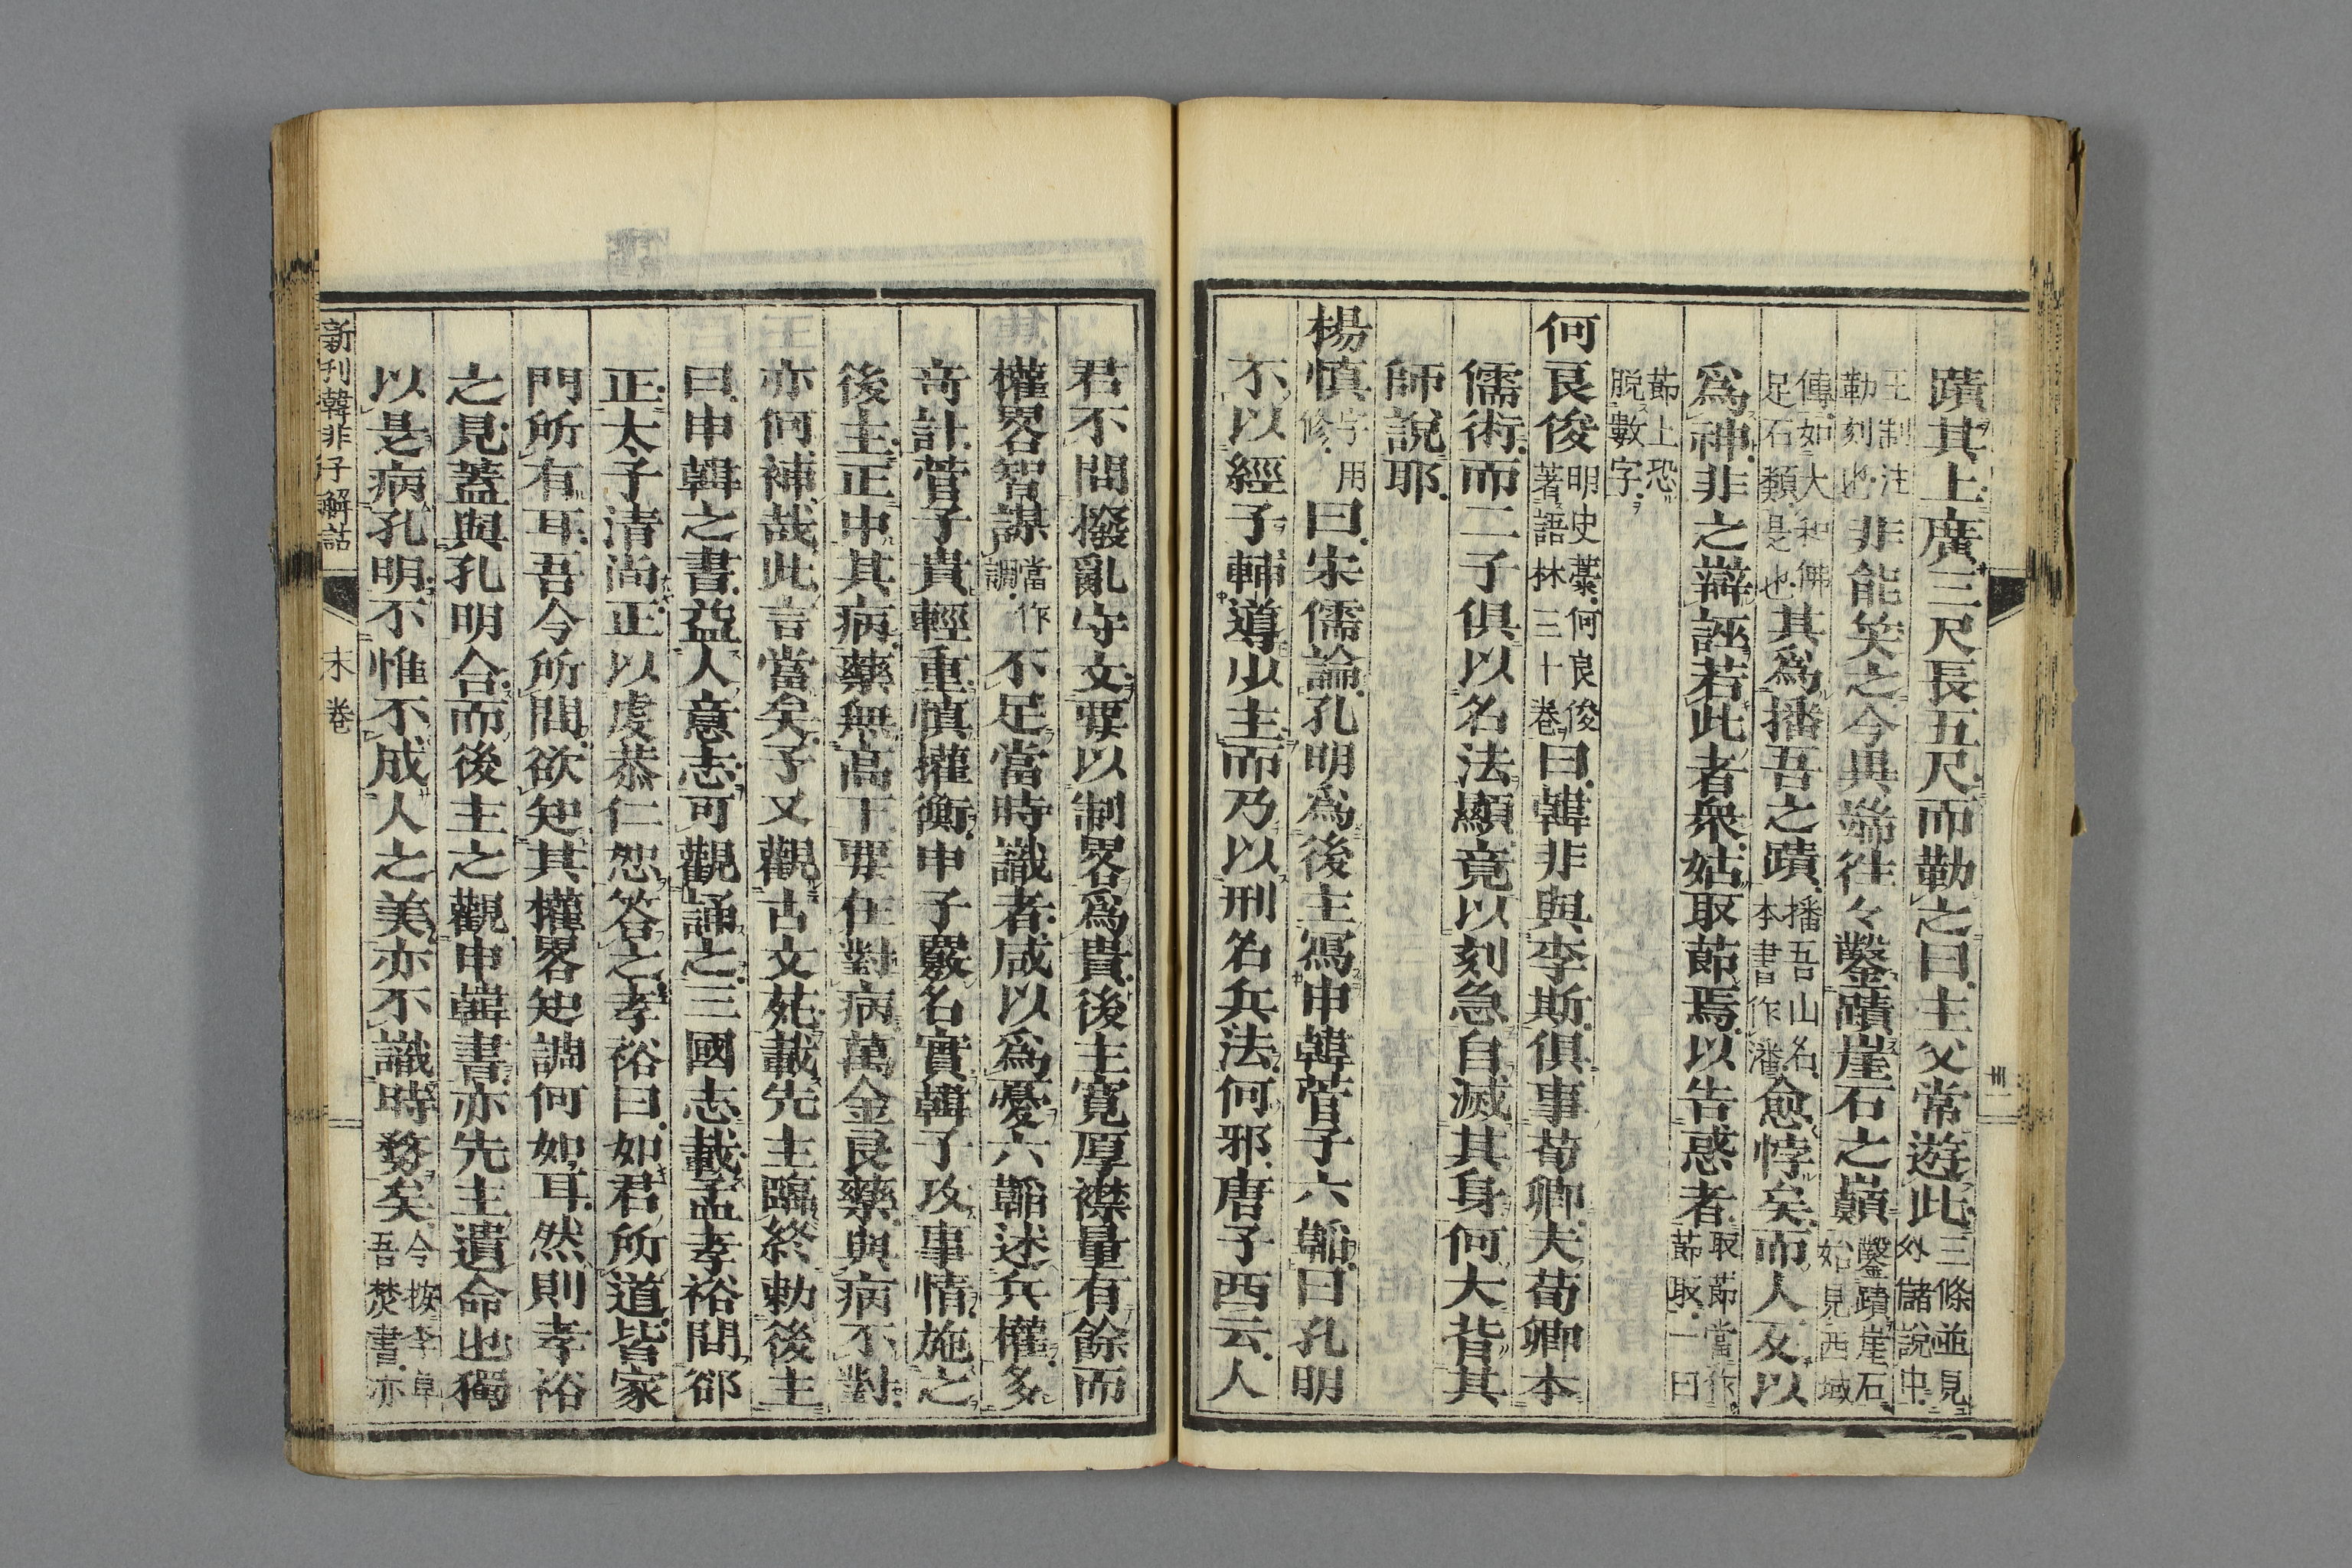 蹟其上廣三尺長五尺而勒之曰主父常遊此三條並見外儲說中
王制注勒刻也非能笑之今異端徃々鑿蹟崖石之巔鑿蹟崖石始見西域
傳如大和佛足石類是也其爲播吾之蹟播吾山名本書作潘愈悖矣而人反以
爲神非之辯誣若此者衆姑取莭焉以告惑者取莭當作莭取一曰
莭上恐脱數字
何良俊明史藁何良俊著語林三十卷曰韓非與李斯俱事荀卿夫荀卿本
儒術而二子俱以名法顯竟以刻急自滅其身何大背其
師說耶
楊慎字用修曰宋儒論孔明爲後主寫申韓管子六韜曰孔明
不以經子輔導少主而乃以刑名兵法何邪唐子西云人
君不問撥亂守文要以制畧爲貴後主寛厚襟量有餘而
權畧智謀當作調不足當時識者咸以爲憂六韜述兵權多
奇計管子貴輕重愼權衡申子覈名實韓子攻事情施之
後主正中其病藥無高下要在對病萬金良藥與病不對
亦何補哉此言當矣子又觀古文苑載先主臨終勅後主
曰申韓之書益人意志可觀誦之三國志載孟孝裕問郤
正太子清尚正以虔恭仁恕答之孝裕曰如君所道皆家
門所有耳吾今所問欲知其權畧知調何如耳然則孝裕
之見蓋與孔明合而後主之觀申韓書亦先主遺命也獨
以是病孔明不惟不成人之美亦不識時務矣今按李卓吾焚書亦
新刊韓非子解詁 末卷